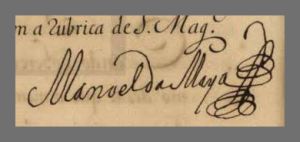 m a rubrica de S. Mag.
Manoel da Maya